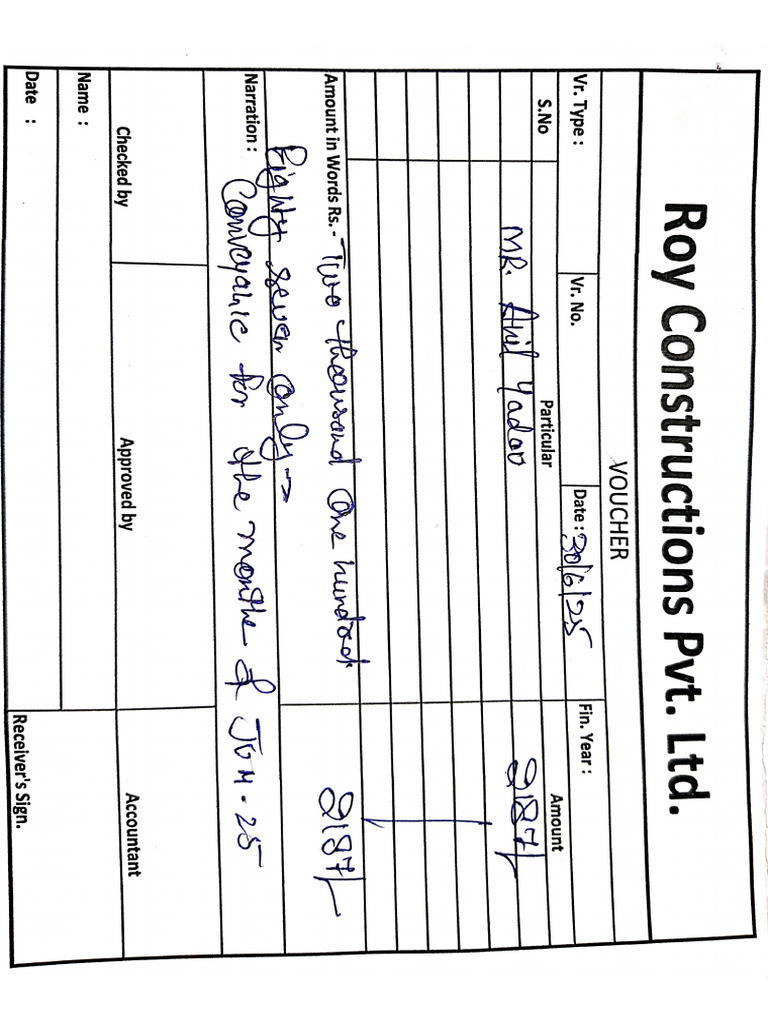 Roy Constructions Pvt. Ltd.
VOUCHER
Vr. Type : Vr. No. Date : 30/6/25 Fin. Year :
S.No Particular Amount
MR. Anil Yadav 2187/-
Amount in Words Rs. - Two thousand One hundred 2187/-
Eighty seven only
Narration : Conveyanic for the months of JUN. 25
Checked by Approved by Accountant
Name :
Date : Receiver's Sign.